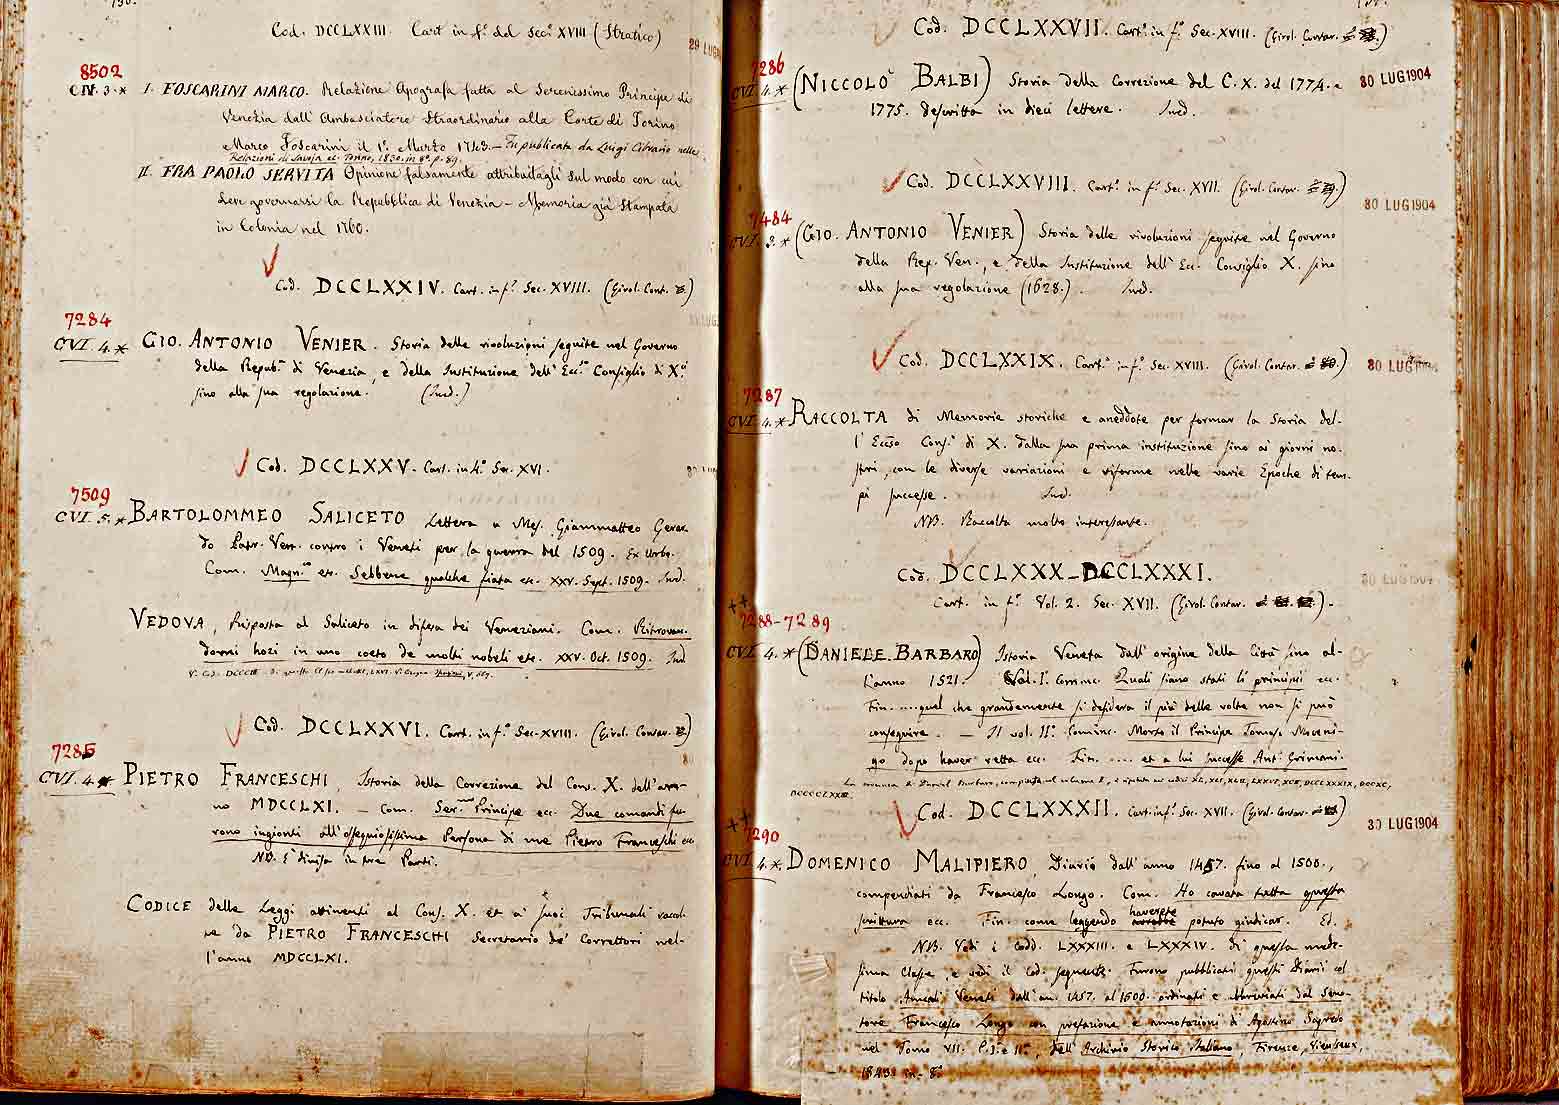 Cod. DCCLXXIII. Cart. in f.º del Sec.º XVIII (Stratico)
29 LUG
8502
CIV. 3. * I. FOSCARINI MARCO. Relazione Apografa fatta al Serenissimo Principe di
Venezia dall' Ambasciatore Straordinario alla Corte di Torino
Marco Foscarini il 1.º Marzo 1743. – Fu publicata da Luigi Cibrario nelle
Relazioni di Savoja ec. Torino, 1830. in 8.º p. 89.
II. FRA PAOLO SERVITA Opinione falsamente attribuitagli sul modo con cui
deve governarsi la Repubblica di Venezia – Memoria già stampata
in Colonia nel 1760.
Cod. DCCLXXIV. Cart. in f.º Sec. XVIII. (Girol. Cont.)
7284
CVI. 4. * GIO. ANTONIO VENIER. Storia delle rivoluzioni seguite nel Governo
della Repub.ª di Venezia, e della Instituzione dell' Ecc.º Consiglio di X.
sino alla sua regolazione. (Ined.)
Cod. DCCLXXV. Cart. in 4.º Sec. XVI.
7509
CVI. 5. * BARTOLOMMEO SALICETO Lettera a Mes. Giammatteo Gerar
do Patr. Ven. contro i Veneti per la guerra del 1509. Ex Urbe.
Com. Magn.co etc. Sebbene qualche fiata etc. XXV. Sept. 1509. Ined.
VEDOVA, Risposta al Saliceto in difesa dei Veneziani. Com. Ritrovan.
domi hozi in uno coeto de molti nobeli etc. XXV. Oct. 1509. Ined
Cod. DCCLXXVI. Cart. in f.º Sec. XVIII. (Girol. Contar.)
7285
CVI. 4. * PIETRO FRANCESCHI Istoria della Correzione del Cons. X. dell' an-
no MDCCLXI. – Com. Ser.mo Principe ecc. Due comandi fu-
rono ingionti all'ossequiosissima Persona di me Pietro Franceschi ec
NB. E' divisa in tre Parti.
CODICE delle Leggi attinenti al Cons. X. et a' suoi Tribunali raccol-
te da PIETRO FRANCESCHI Secretario de' Correttori nel-
l'anno MDCCLXI.
Cod. DCCLXXVII. Cart. in f.º Sec. XVIII. (Girol. Contar.)
7286
CVI. 4. * (NICCOLÒ BALBI) Storia della Correzione del C. X. del 1774. e
30 LUG 1904
1775. descritta in dieci lettere. Ined.
Cod. DCCLXXVIII. Cart. in f.º Sec. XVII. (Girol. Contar.)
30 LUG 1904
7484
CVI. 3. * (GIO. ANTONIO VENIER) Storia delle rivoluzioni seguite nel Governo
della Rep. Ven., e della Instituzione dell' Ecc. Consiglio X. sino
alla sua regolazione (1628.). Ined.
Cod. DCCLXXIX. Cart. in f.º Sec. XVIII. (Girol. Contar.)
30 LUG 1904
7287
CVI. 4. * RACCOLTA di Memorie storiche e aneddote per formar la Storia del-
l' Eccso Cons.º di X. dalla sua prima instituzione sino ai giorni no-
stri, con le diverse variazioni e riforme nelle varie Epoche di tem-
pi successe. Ined.
NB. Raccolta molto interessante.
Cod. DCCLXXX – DCCLXXXI.
30 LUG 1904
Cart. in f.º Vol. 2. Sec. XVII. (Girol. Contar.).
++
7288–7289
CVI. 4. * (DANIELE BARBARO) Istoria Veneta dall' origine della Città sino al-
l'anno 1521. Vol. I.º Cominc. Quali siano stati li principii ec.
Fin. .... quel che grandemente si desidera il più delle volte non si può
conseguire. – Il vol. II.º Cominc. Morto il Principe Tomaso Moceni-
go dopo haver retta ecc. Fin. .... et a lui successe Ant.º Grimani.
Cod. DCCLXXXII. Cart. in f.º Sec. XVII. (Girol. Contar.)
30 LUG 1904
++
7290
CVI. 4. * DOMENICO MALIPIERO, Diarii dall' anno 1457. fino al 1500.,
compendiati da Francesco Longo. Com. Ho cavata tutta questa
scrittura ecc. Fin. come leggendo haverete potuto giudicar. Ed.
NB. Vedi i Codd. LXXXIII. e LXXXIV. di questa mede-
sima Classe, e vedi il cod. seguente. Furono pubblicati questi Diarii col
titolo Annali Veneti dall' an. 1457. al 1500. ordinati e abbreviati dal Sena-
tore Francesco Longo con prefazione e annotazioni di Agostino Sagredo
nel Tomo VII. P. I.ª e II.ª, dell' Archivio Storico Italiano, Firenze, Vieusseux,
1843. in-8.º